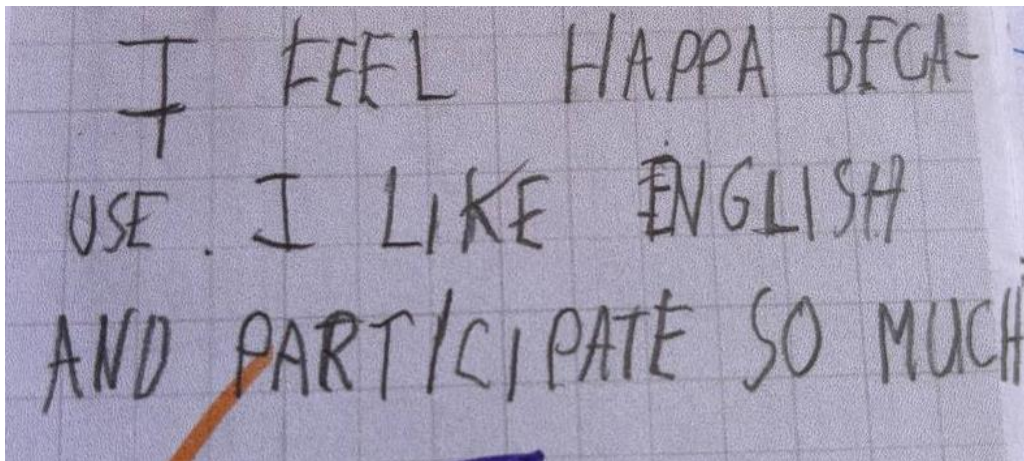 I FEEL HAPPA BECA-
USE. I LIKE ENGLISH
AND PARTICIPATE SO MUCH